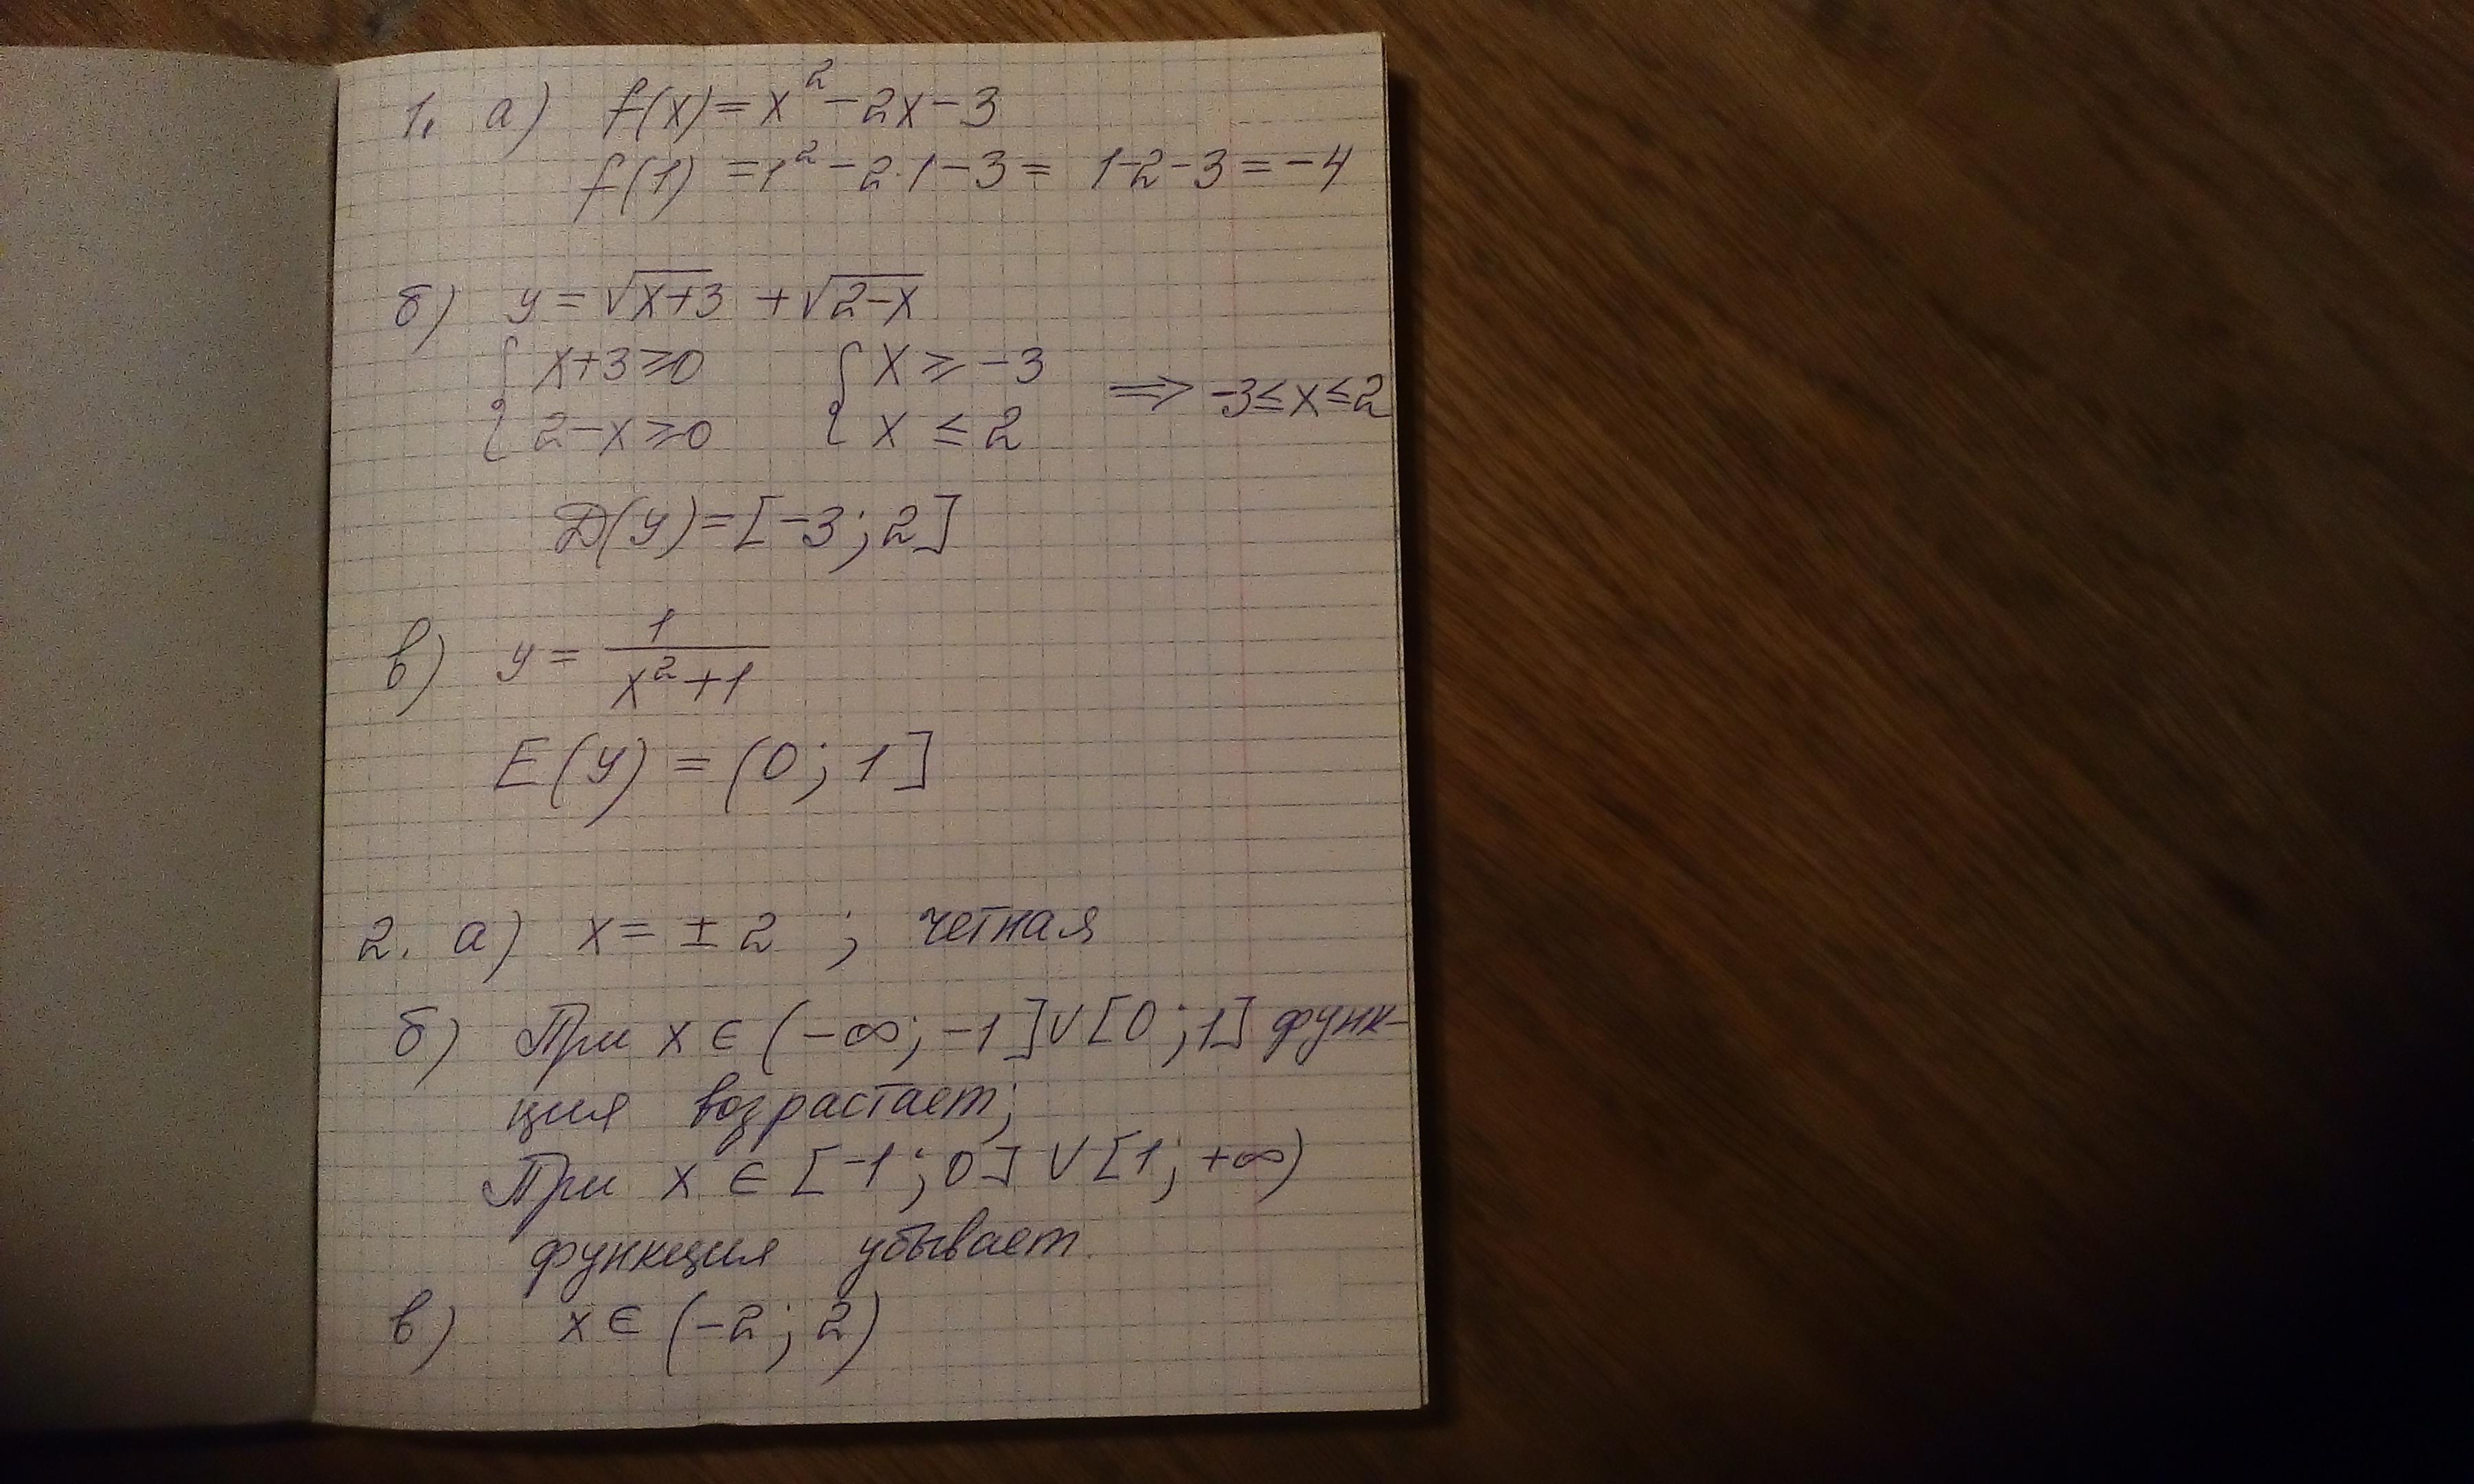 1. а) f(x) = x² - 2x - 3
f(1) = 1² - 2·1 - 3 = 1-2-3 = -4
б) y = √x+3 + √2-x
{ x+3 ≥ 0 { x ≥ -3 ⟹ -3 ≤ x ≤ 2
{ 2-x ≥ 0 { x ≤ 2
D(y) = [-3; 2]
в) y = 1/(x²+1)
E(y) = (0; 1]
2. а) x = ± 2 ; четная
б) При x ∈ (-∞; -1] ∪ [0; 1] функ-
ция возрастает;
При x ∈ [-1; 0] ∪ [1; +∞)
функция убывает.
в) x ∈ (-2; 2)